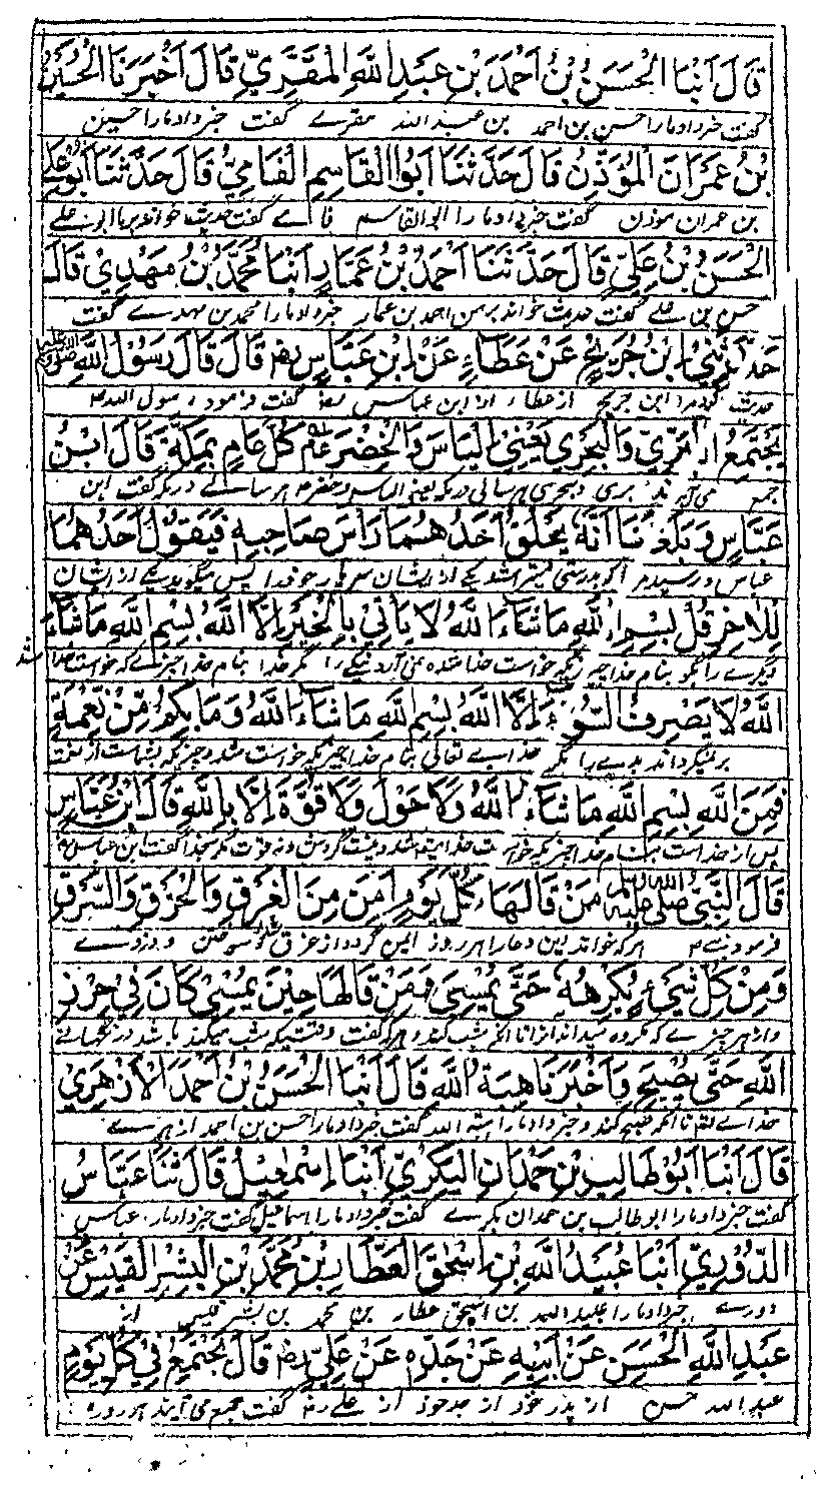 قَالَ اَنْبَا الْحَسَنُ بْنُ اَحْمَدَ بْنِ عَبْدِ اللّٰهِ الْمُقَرِّيِّ قَالَ اَخْبَرَنَا الْحُسَيْنُ
گفت خبرداد مارا حسن بن احمد بن عبد الله مقرے گفت خبرداد مارا حسین
بْنُ عِمْرَانَ الْمُؤَذِّنُ قَالَ حَدَّثَنَا اَبُو الْقَاسِمِ الْفَامِيُّ قَالَ حَدَّثَنَا اَبُو عَلِي
بن عمران موذن گفت خبرداد مارا ابو القاسم فامے گفت حدیث خواند برما ابو علے
الْحَسَنُ بْنُ عَلِيٍّ قَالَ حَدَّثَنَا اَحْمَدُ بْنُ عَمَّارٍ اَنْبَا مُحَمَّدُ بْنُ مَهْدِيٍّ قَالَ
حسن بن علے گفت حدیث خواند برمن احمد بن عمار خبرداد مارا محمد بن مهدے گفت
حَدَّثَنِي ابْنُ جُرَيْجٍ عَنْ عَطَاءٍ عَنْ اِبْنِ عَبَّاسٍ رض قَالَ قَالَ رَسُوْلُ اللّٰهِ صلى الله عليه
حدیث کرد مرا ابن جریج از عطاء از ابن عباس رض گفت فرمود رسول الله
يَجْتَمِعُ الْبَرِّيُّ وَالْبَحْرِي يَعْنِيْ اِلْيَاسَ وَالْخِضْرَ عم كُلَّ عَامٍ بِمَكَّةَ قَالَ ابْنُ
جمع می آیند بری و بحری هر سالی در مکه یعنی الیاس و خضر هر سالے در مکه گفت ابن
عَبَّاسٍ وَبَلَغَنَا اَنَّهُ يَحْلِقُ اَحَدُهُمَا رَاْسَ صَاحِبِهِ فَيَقُوْلُ اَحَدُهُمَا
عباس و رسید مر یکے از ایشان سر یار خود را پس میگوید یکے از ایشان
لِلْاٰخِرِ قُلْ بِسْمِ اللّٰهِ مَا شَآءَ اللّٰهُ لَا يَاْتِي بِالْخَيْرِ اِلَّا اللّٰهُ بِسْمِ اللّٰهِ مَا شَآءَ
دیگرے را بگو بنام خدا چیزیکه خواست خدا نمی آرد نیکے را مگر خدا بنام خدا چیزے که خواست خدا
اللّٰهُ لَا يَصْرِفُ السُّوْءَ اِلَّا اللّٰهُ بِسْمِ اللّٰهِ مَا شَآءَ اللّٰهُ وَمَا بِكُمْ مِّنْ نِّعْمَةٍ
برنمیگرداند بدے را مگر خداے تعالی بنام خدا چیزیکه خواست خدا و چیزیکه بشماست از نعمت
فَمِنَ اللّٰهِ بِسْمِ اللّٰهِ مَا شَآءَ اللّٰهُ وَلَا حَوْلَ وَلَا قُوَّةَ اِلَّا بِاللّٰهِ قَالَ ابْنُ عَبَّاسٍ
پس از خداست بنام خدا چیزیکه خواست خدا و نیست گردش و نه قوت مگر بخدا گفت ابن عباس
قَالَ النَّبِيُّ صلى الله عليه وسلم مَنْ قَالَهَا كُلَّ يَوْمٍ اَمِنَ مِنَ الْغَرَقِ وَالْحَرَقِ وَالسَّرَقِ
فرمود نبے هرکه خواند این دعا را هر روز ایمن گردد از غرق سوختن و دزدے
وَمِنْ كُلِّ شَيْءٍ يُكْرِهُهُ حَتَّى يُمْسِيَ فَمَنْ قَالَهَا حِيْنَ يُمْسِيْ كَانَ فِيْ حِرْزِ
و از هر چیزے که مکروه میداند تا آنکه شب کند و هرکه گفت وقتیکه شب میکند باشد در نگهبانے
اللّٰهِ حَتَّى يُصْبِحَ وَاَخْبَرَنَا هِبَةُ اللّٰهِ قَالَ اَنْبَا الْحَسَنُ بْنُ اَحْمَدَ الْاَزْهَرِيُّ
خداے تا آنکه صبح کند و خبرداد مارا هبة الله گفت خبرداد مارا حسن بن احمد ازهرے
قَالَ اَنْبَا اَبُوْ طَالِبِ بْنِ حَمْدَانِ الْبَكْرِيِّ اَنْبَاءِ اِسْمٰعِيْلُ قَالَ ثَنَا عَبَّاسُ
گفت خبرداد مارا ابو طالب بن حمدان بکرے گفت خبرداد مارا اسماعیل گفت خبرداد مارا عباس
الدُّوْرِيُّ اَنْبَا عُبَيْدُ اللّٰهِ بْنِ اِسْحٰقَ الْعَطَّارِ بْنِ مُحَمَّدِ بْنِ الْبِشْرِ الْقَيْسِ عَنْ
دورے خبرداد مارا عبید الله بن اسحق عطار بن محمد بن بشر قیسی از
عَبْدِ اللّٰهِ الْحَسَنِ عَنْ اَبِيْهِ عَنْ جَدِّهِ عَنْ عَلِيٍّ رض قَالَ يَجْتَمِعُ فِيْ كُلِّ يَوْمِ
عبد الله حسن از پدر خود از جد خود از علے رض گفت جمع می آیند هر روز